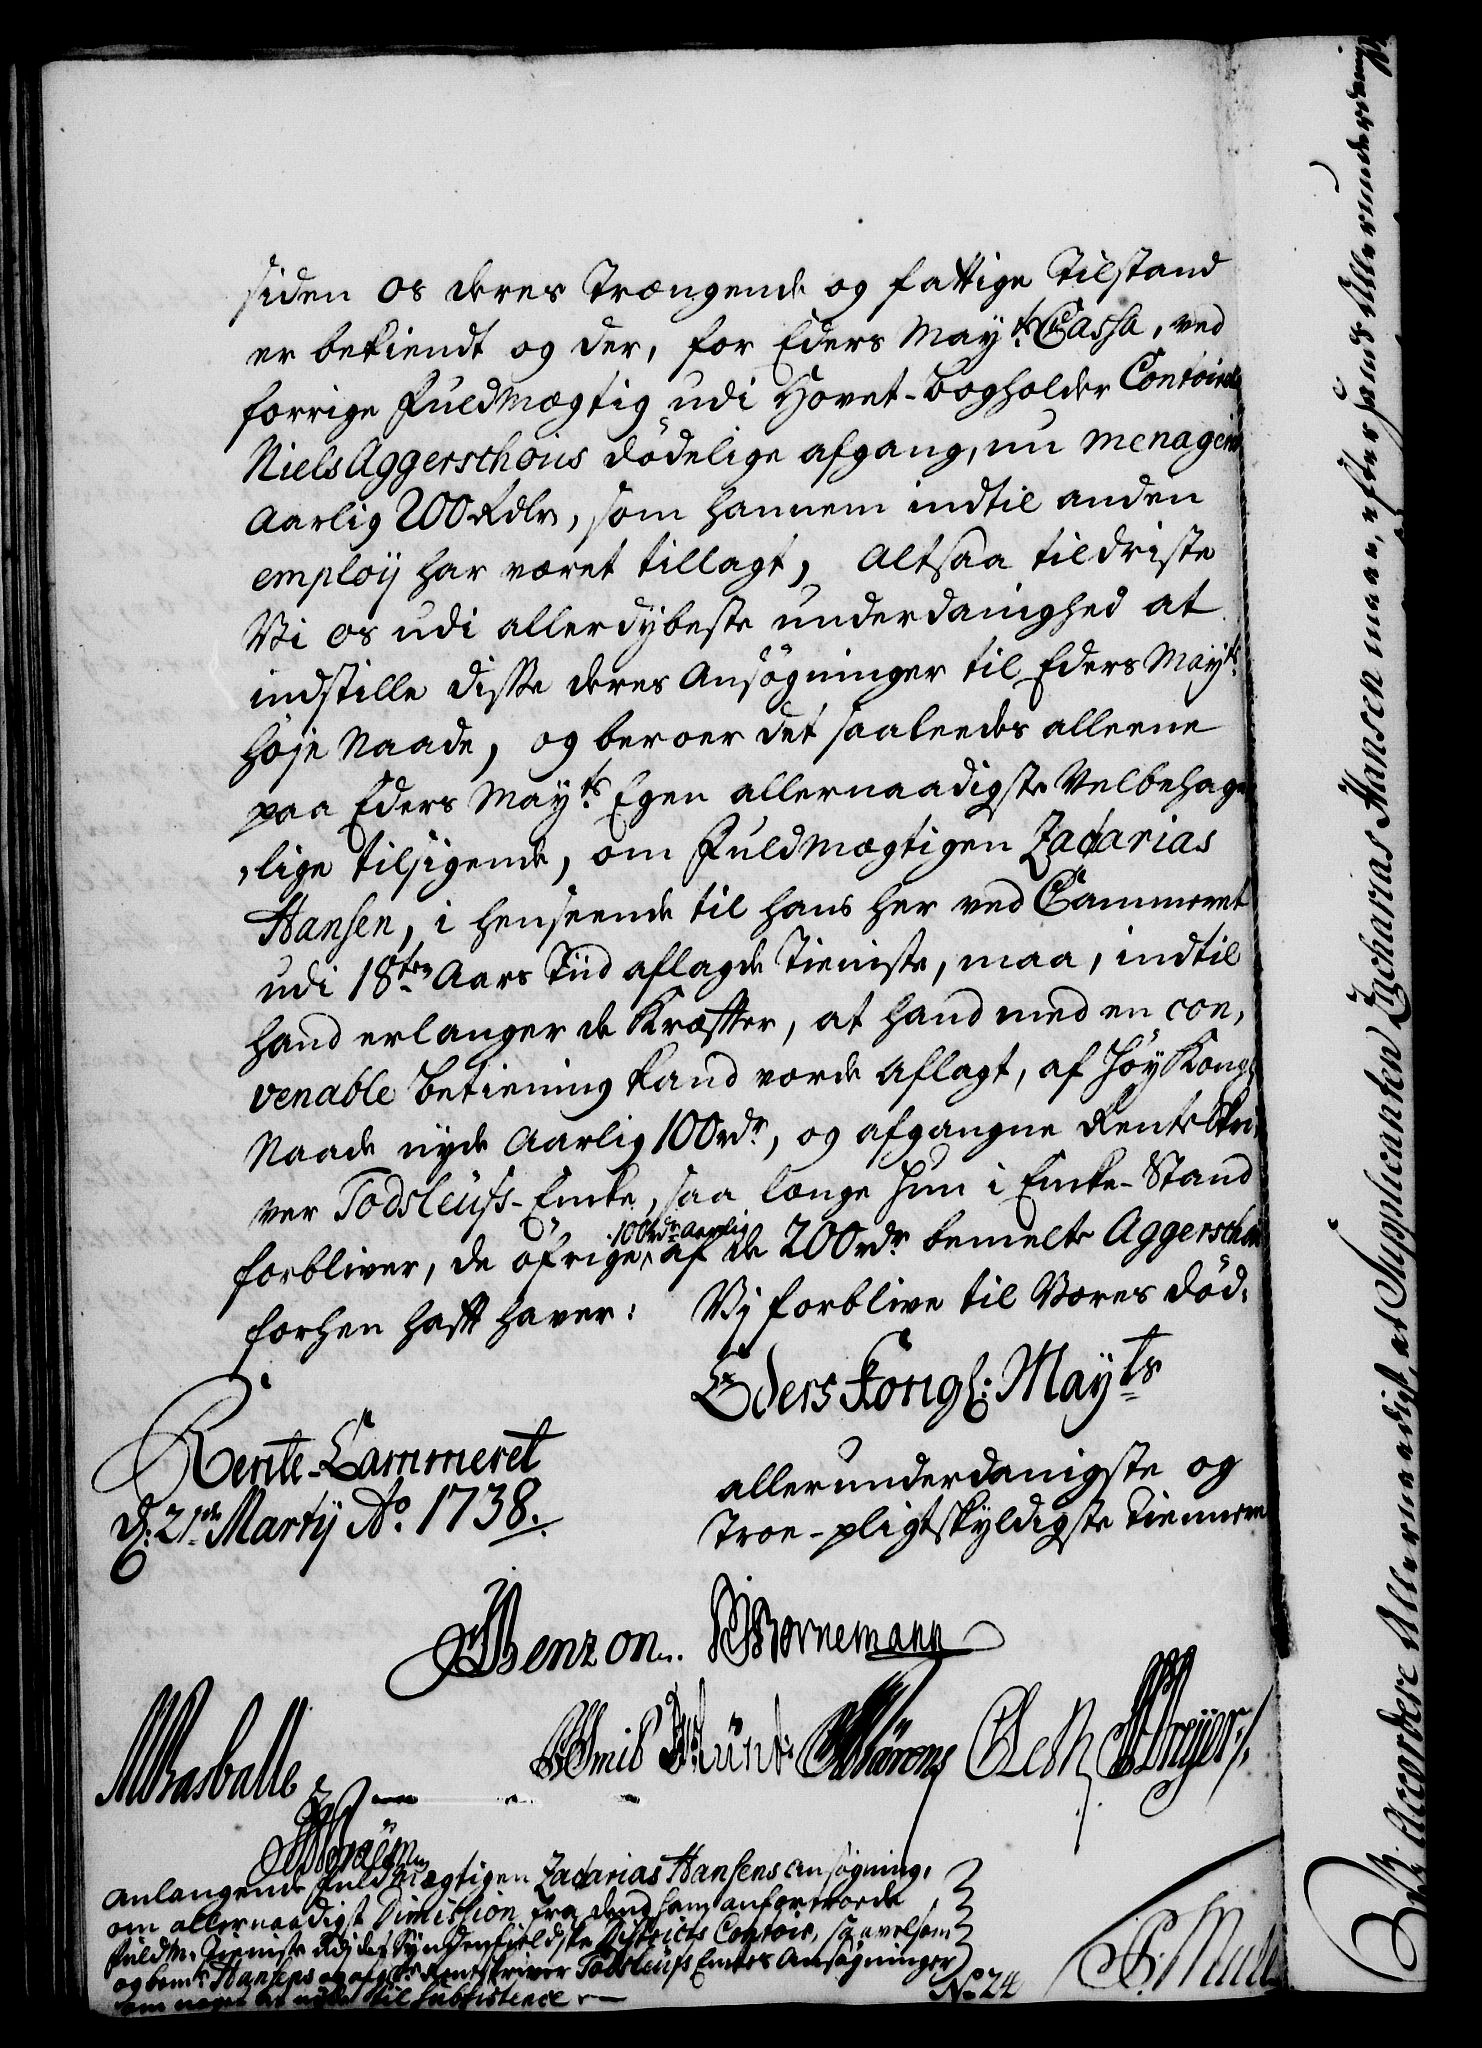 siden os deres Trængende og fattige Tilstand
er bekiendt og der, for Eders May:ts Cassa, ved
forrige Fuldmægtig udi Hovet-bogholder Contoiret
Niels Aggerschous dödelige afgang, nu menageris
Aarlig 200 Rdlr, som hannem indtil anden
employ har været tillagt, Altsaa tildriste
Vi os udi allerdybeste underdanighed at
indstille disse deres Ansögninger til Eders May:ts
höje Naade, og beroer det saaleedes alleene
paa Eders May:ts Egen allernaadigste Velbehage
lige tilsigende, om Fuldmægtigen Zacharias
Hansen, i henseende til hans her ved Cammeret
udi 18ten Aars Tiid aflagde Tieniste, maa, indtil
hand erlanger de Kræffter, at hand med en con,
venable betiening kand vorde aflagt, af Höy Kongl
Naade nyde Aarlig 100 rdr, og afgangne Renteskri
ver Todsleufs-Encke, saa længe hun i Encke-Stand
forbliver, de öfrige 100 rdr Aarlig af de 200 rdr bemelte Aggerschou
forhen hafft haver: Vi forblive til Vores död.
Eders Kongl: Mayts
Rente-Cammeret
d: 21de Marty Ao 1738.
allerunderdanigste og
Troe-pligtskyldigste Tiennere
Benzon. Bornemann
Braëm
Anlangende Fuldmægtigen Zacharias Hansens Ansögning,
om allernaadigst Dimission fra dend ham anfortroede
Fuldm: Tieniste ved det Syndenfieldske Districts Contoir, saavelsom
ogbem:te Hansens og afg:ne Renteskriver Todsleufs Enckes Ansögninger
om noget at nyde til Subsistence.
No 24
Accordere Allernaadigst, at Supplicanten Zacharias Hansen maae, efter hands Allerunderdanig